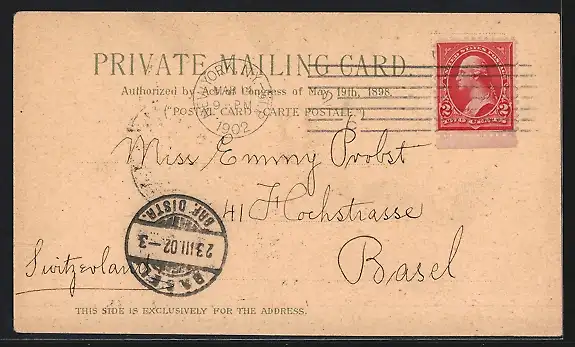 PRIVATE MAILING CARD
Authorized by Act of Congress of May 19th, 1898.
("POSTAL CARD-CARTE POSTALE")
NEW YORK, N.Y.
9-PM
1902
2 TWO CENTS 2
Miss Emmy Probst
41 Hochstrasse
Basel
Switzerland
BRF. DISTR.
23.III.02.-3
BASEL
THIS SIDE IS EXCLUSIVELY FOR THE ADDRESS.